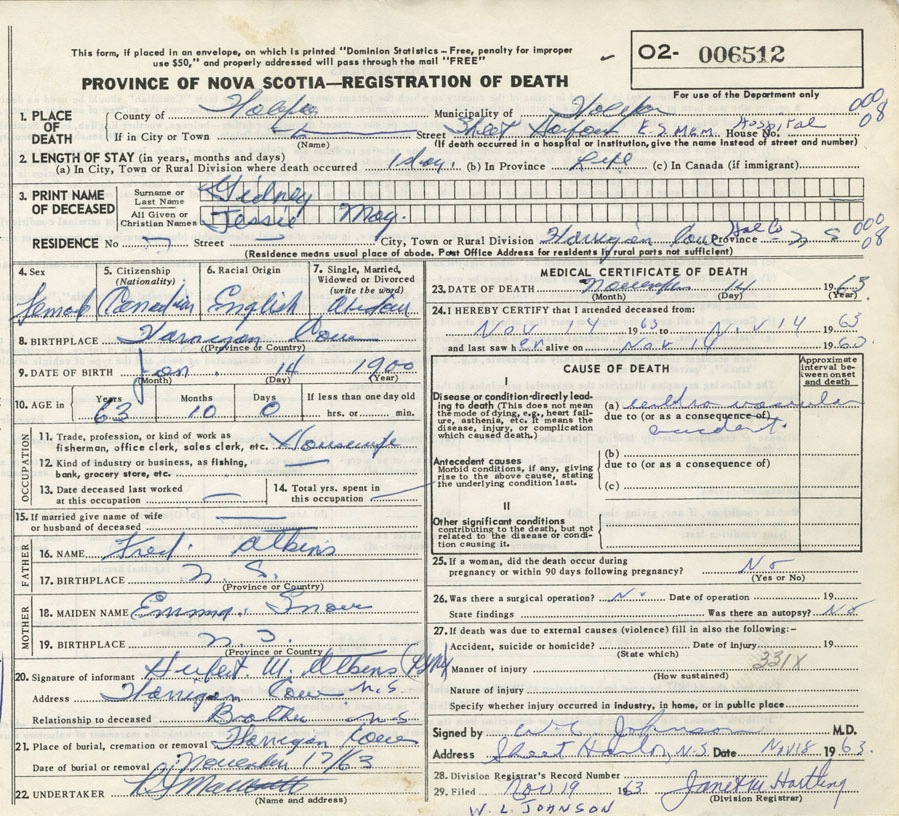 This form, if placed in an envelope, on which is printed "Dominion Statistics – Free, penalty for improper
use $50," and properly addressed will pass through the mail "FREE"
PROVINCE OF NOVA SCOTIA—REGISTRATION OF DEATH
O2- 006512
For use of the Department only
000
08
1. PLACE OF DEATH
County of Halifax Municipality of Halifax
If in City or Town (Name) Street Sheet Harbour E.S. Mem. Hospital House No.
(If death occurred in a hospital or institution, give the name instead of street and number)
2. LENGTH OF STAY (in years, months and days)
(a) In City, Town or Rural Division where death occurred 1 day. (b) In Province Life (c) In Canada (if immigrant)
3. PRINT NAME OF DECEASED
Surname or Last Name Gidney
All Given or Christian Names Jessie May.
RESIDENCE No Street City, Town or Rural Division Harrigan Cove Hal Co Province N S
000
08
(Residence means usual place of abode. Post Office Address for residents in rural parts not sufficient)
4. Sex 5. Citizenship (Nationality) 6. Racial Origin 7. Single, Married, Widowed or Divorced (write the word)
Female Canadian English
8. BIRTHPLACE Harrigan Cove
(Province or Country)
9. DATE OF BIRTH Jan. 14 1900
(Month) (Day) (Year)
10. AGE in Years Months Days If less than one day old
63 10 0 hrs. or min.
OCCUPATION
11. Trade, profession, or kind of work as fisherman, office clerk, sales clerk, etc. Housewife
12. Kind of industry or business, as fishing, bank, grocery store, etc.
13. Date deceased last worked at this occupation
14. Total yrs. spent in this occupation
15. If married give name of wife or husband of deceased
FATHER
16. NAME Fred. Atkins
17. BIRTHPLACE N. S.
(Province or Country)
MOTHER
18. MAIDEN NAME Emma. Snow
19. BIRTHPLACE N. S.
(Province or Country)
20. Signature of informant Hubert M. Atkins
Address Harrigan Cove N.S.
Relationship to deceased Brother N S
21. Place of burial, cremation or removal Harrigan Cove
Date of burial or removal November 17/63
22. UNDERTAKER
(Name and address)
MEDICAL CERTIFICATE OF DEATH
23. DATE OF DEATH November 14 1963
(Month) (Day) (Year)
24. I HEREBY CERTIFY that I attended deceased from:
Nov 14 1963 to Nov 14 1963
and last saw her alive on Nov 14 1963
CAUSE OF DEATH
Approximate interval between onset and death
I
Disease or condition directly leading to death (This does not mean the mode of dying, e.g., heart failure, asthenia, etc. It means the disease, injury, or complication which caused death.)
(a) cerebro vascular
due to (or as a consequence of)
accident.
Antecedent causes
Morbid conditions, if any, giving rise to the above cause, stating the underlying condition last.
(b)
due to (or as a consequence of)
(c)
II
Other significant conditions contributing to the death, but not related to the disease or condition causing it.
25. If a woman, did the death occur during pregnancy or within 90 days following pregnancy? No
(Yes or No)
26. Was there a surgical operation? No Date of operation 19
State findings Was there an autopsy? No
27. If death was due to external causes (violence) fill in also the following:–
Accident, suicide or homicide? Date of injury 19
(State which)
331X
Manner of injury
(How sustained)
Nature of injury
Specify whether injury occurred in industry, in home, or in public place
Signed by W L Johnson M.D.
Address Sheet Harbor, N.S Date Nov 18 1963.
28. Division Registrar's Record Number
29. Filed Nov 19 1963 Janet M Hartling
(Division Registrar)
W. L. JOHNSON